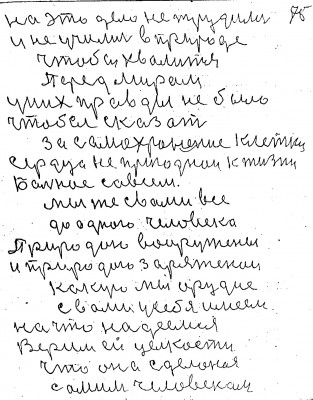 на это дело не трудили 75
и не учили в природе
чтобы хвалится
перед миром
у них правды не было
чтобы сказат
за самохранение клетки
сердца не пригодной к жизни
Бальное совсем.
мы же с вами все
до одного человека
Природою вооружены
и природою заряжении
какую мы орудие
с вами у себя имеем
на что надеемся
Верим ей целкости
что она сделоная
самим человекам